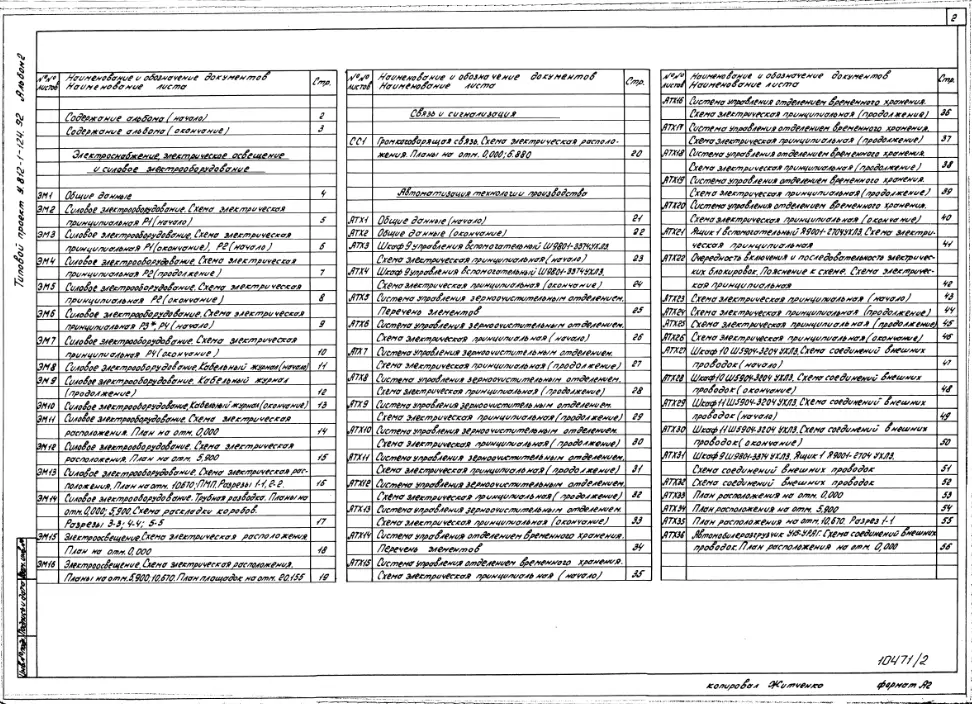 2
Типовой проект № 812-1-124.92 Альбом 2
№№ листов
Наименование и обозначение документов
Наименование листа
Стр.
Содержание альбома (начало) 2
Содержание альбома (окончание) 3
Электроснабжение, электрическое освещение
и силовое электрооборудование
ЭМ1 Общие данные 4
ЭМ2 Силовое электрооборудование. Схема электрическая
принципиальная Р1 (начало) 5
ЭМ3 Силовое электрооборудование. Схема электрическая
принципиальная Р1 (окончание), Р2 (начало) 6
ЭМ4 Силовое электрооборудование. Схема электрическая
принципиальная Р2 (продолжение) 7
ЭМ5 Силовое электрооборудование. Схема электрическая
принципиальная Р2 (окончание) 8
ЭМ6 Силовое электрооборудование. Схема электрическая
принципиальная Р3*, Р4 (начало) 9
ЭМ7 Силовое электрооборудование. Схема электрическая
принципиальная Р4 (окончание) 10
ЭМ8 Силовое электрооборудование. Кабельный журнал (начало) 11
ЭМ9 Силовое электрооборудование. Кабельный журнал
(продолжение) 12
ЭМ10 Силовое электрооборудование, Кабельный журнал (окончание) 13
ЭМ11 Силовое электрооборудование. Схема электрическая
расположения. План на отм. 0,000 14
ЭМ12 Силовое электрооборудование. Схема электрическая
расположения. План на отм. 5,900 15
ЭМ13 Силовое электрооборудование. Схема электрическая рас-
положения. План на отм. 10.670; ПМП. Разрезы 1-1, 2-2. 16
ЭМ14 Силовое электрооборудование. Трубная разводка. Планы на
отм. 0,000; 5,900. Схема раскладки коробов.
Разрезы 3-3; 4-4; 5-5 17
ЭМ15 Электроосвещение. Схема электрическая расположения
План на отм. 0,000 18
ЭМ16 Электроосвещение. Схема электрическая расположения.
Планы на отм. 5.900, 10,670. План площадок на отм. 20.155 19
№№ листов
Наименование и обозначение документов
Наименование листа
Стр.
Связь и сигнализация
СС1 Громкоговорящая связь. Схема электрическая располо-
жения. Планы на отм. 0,000; 6.890 20
Автоматизация технологии производства
АТХ1 Общие данные (начало) 21
АТХ2 Общие данные (окончание) 22
АТХ3 Шкаф 9 управления вспомогательный Ш9801-3374УХЛ3.
Схема электрическая принципиальная (начало) 23
АТХ4 Шкаф 9 управления вспомогательный Ш9801-3374УХЛ3.
Схема электрическая принципиальная (окончание) 24
АТХ5 Система управления зерноочистительным отделением.
Перечень элементов 25
АТХ6 Система управления зерноочистительным отделением.
Схема электрическая принципиальная (начало) 26
АТХ7 Система управления зерноочистительным отделением.
Схема электрическая принципиальная (продолжение) 27
АТХ8 Система управления зерноочистительным отделением.
Схема электрическая принципиальная (продолжение) 28
АТХ9 Система управления зерноочистительным отделением.
Схема электрическая принципиальная (продолжение) 29
АТХ10 Система управления зерноочистительным отделением.
Схема электрическая принципиальная (продолжение) 30
АТХ11 Система управления зерноочистительным отделением.
Схема электрическая принципиальная (продолжение) 31
АТХ12 Система управления зерноочистительным отделением.
Схема электрическая принципиальная (продолжение) 32
АТХ13 Система управления зерноочистительным отделением.
Схема электрическая принципиальная (окончание) 33
АТХ14 Система управления отделением временного хранения.
Перечень элементов 34
АТХ15 Система управления отделением временного хранения.
Схема электрическая принципиальная (начало) 35
№№ листов
Наименование и обозначение документов
Наименование листа
Стр.
АТХ16 Система управления отделением временного хранения.
Схема электрическая принципиальная (продолжение) 36
АТХ17 Система управления отделением временного хранения.
Схема электрическая принципиальная (продолжение) 37
АТХ18 Система управления отделением временного хранения.
Схема электрическая принципиальная (продолжение) 38
АТХ19 Система управления отделением временного хранения.
Схема электрическая принципиальная (продолжение) 39
АТХ20 Система управления отделением временного хранения.
Схема электрическая принципиальная (окончание) 40
АТХ21 Ящик 1 вспомогательный Я9001-2704УХЛ3. Схема электри-
ческая принципиальная 41
АТХ22 Очередность включения и последовательность электричес-
ких блокировок. Пояснение к схеме. Схема электричес-
кая принципиальная 42
АТХ23 Схема электрическая принципиальная (начало) 43
АТХ24 Схема электрическая принципиальная (продолжение) 44
АТХ25 Схема электрическая принципиальная (продолжение) 45
АТХ26 Схема электрическая принципиальная (окончание) 46
АТХ27 Шкаф 10 Ш5904-3204 УХЛ3. Схема соединений внешних
проводок (начало) 47
АТХ28 Шкаф 10 Ш5904-3204 УХЛ3. Схема соединений внешних
проводок (окончание) 48
АТХ29 Шкаф 11 Ш5904-3204 УХЛ3. Схема соединений внешних
проводок (начало) 49
АТХ30 Шкаф 11 Ш5904-3204 УХЛ3. Схема соединений внешних
проводок (окончание) 50
АТХ31 Шкаф 9 Ш9801-3374 УХЛ3. Ящик 1 Я9001-2704 УХЛ3.
Схема соединений внешних проводок 51
АТХ32 Схема соединений внешних проводок 52
АТХ33 План расположения на отм. 0,000 53
АТХ34 План расположения на отм. 5,900 54
АТХ35 План расположения на отм. 10,670. Разрез 1-1 55
АТХ36 Автомобилеразгрузчик У15-УРАГ. Схема соединений внешних
проводок. План расположения на отм. 0,000 56
Инв.№ подл. Подпись и дата
10471/2
копировал Житченко формат А2